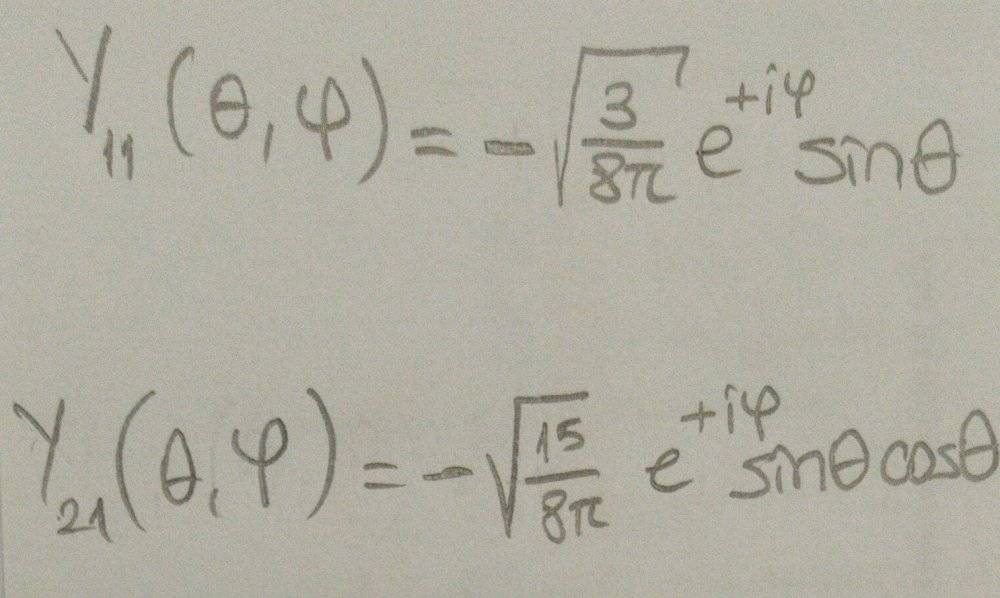 Y₁₁(θ,φ) = -√(3/8π) e^{+iφ} sinθ
Y₂₁(θ,φ) = -√(15/8π) e^{+iφ} sinθcosθ